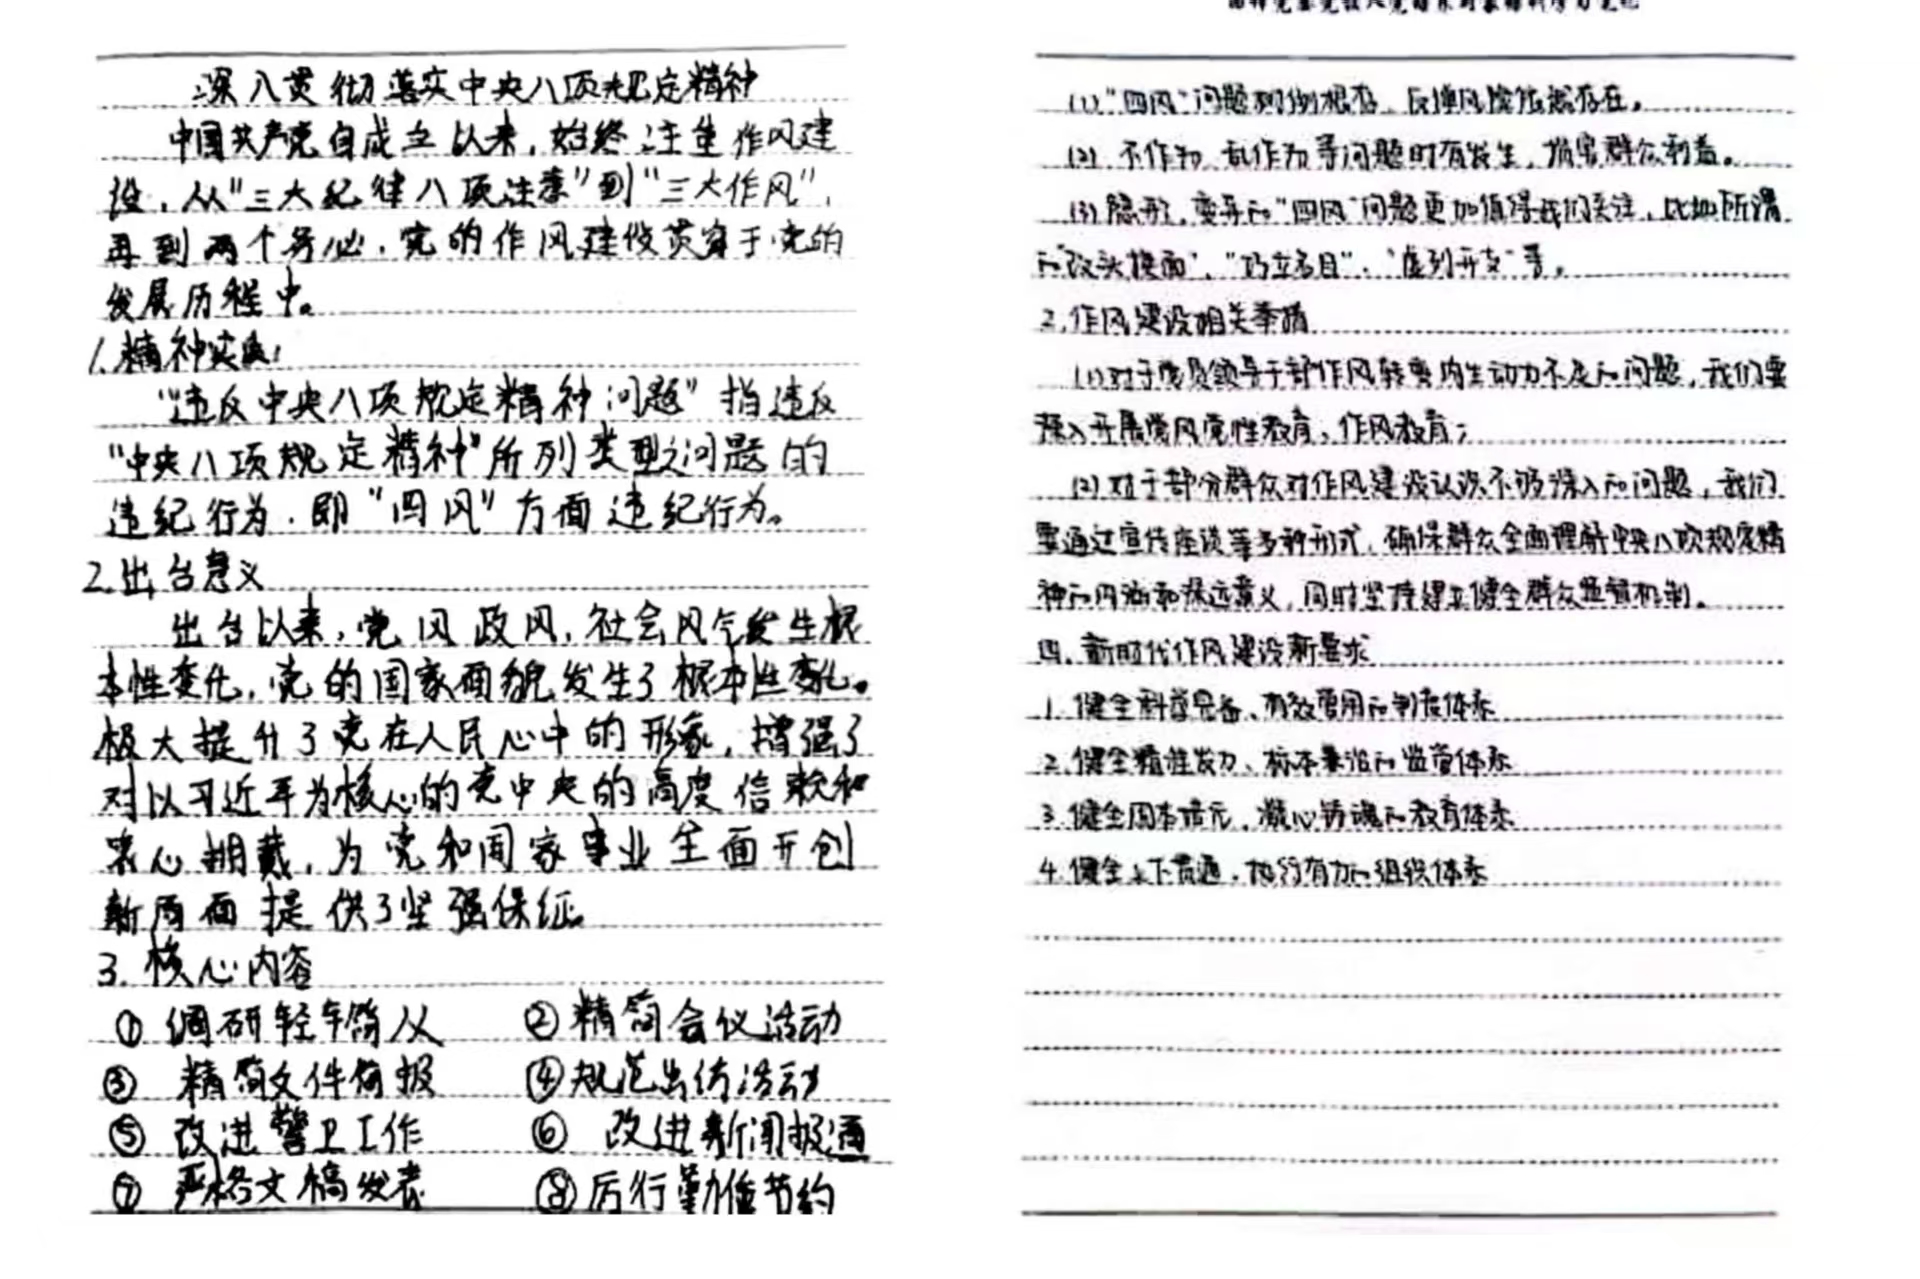 深入贯彻落实中央八项规定精神
中国共产党自成立以来，始终注重作风建
设，从“三大纪律八项注意”到“三大作风”，
再到两个务必，党的作风建设贯穿于党的
发展历程中。
1.精神实质
“违反中央八项规定精神问题”指违反
“中央八项规定精神”所列类型之问题的
违纪行为，即“四风”方面违纪行为。
2.出台意义
出台以来，党风政风，社会风气发生根
本性变化，党的国家面貌发生了根本性变化。
极大提升了党在人民心中的形象，增强了
对以习近平为核心的党中央的高度信赖和
衷心拥戴，为党和国家事业全面开创
新局面提供了坚强保证。
3.核心内容
①调研轻车简从 ②精简会议活动
③精简文件简报 ④规范出访活动
⑤改进警卫工作 ⑥改进新闻报道
⑦严格文稿发表 ⑧厉行勤俭节约
(1)“四风”问题树倒根存，反弹风险依然存在。
(2)不作为、乱作为等问题时有发生，损害群众利益。
(3)隐形、变异的“四风”问题更加值得我们关注，比如所谓
的“改头换面”、“巧立名目”、“虚列开支”等。
2.作风建设相关举措
(1)对于党员领导干部作风转变内生动力不足的问题，我们要
深入开展党风党性教育、作风教育；
(2)对于部分群众对作风建设认识不够深入的问题，我们
要通过宣传座谈等多种形式，确保群众全面理解中央八项规定精
神的内涵和深远意义，同时坚持建立健全群众监督机制。
四、新时代作风建设新要求
1.健全科学完备、有效管用的制度体系
2.健全精准发力、标本兼治的监管体系
3.健全固本培元、凝心铸魂的教育体系
4.健全上下贯通、执行有力的组织体系